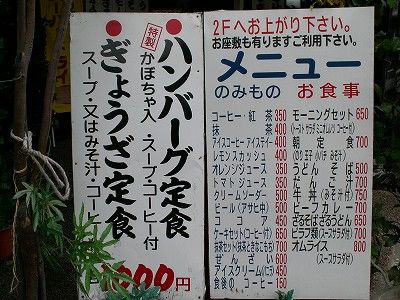 ●ハンバーグ定食
特製
かぼちゃ入・スープ・コーヒー付
●ぎょうざ定食
スープ・又はみそ汁・コーヒー
2Fへお上がり下さい。
お座敷も有りますご利用下さい。
メニュー
のみもの お食事
コーヒー・紅茶 350
抹茶 400
アイスコーヒー アイスティー 400
レモンスカッシュ 400
オレンジジュース 350
トマトジュース 350
クリームソーダー 500
ビール(アサヒ中) 500
コーラ 450
ケーキセット(コーヒー付) 650
抹茶セット(抹茶ときなこもち) 700
ぜんざい 600
アイスクリーム(バニラ) 450
食後のコーヒー 150
モーニングセット 650
(トースト サラダ ミニオムレツ コーヒー付)
朝定食 700
うどん そば 500
だんご汁 700
牛丼(みそ汁付) 750
ビーフカレー 700
ざるそばざるうどん 650
ピラフ類(スープサラダ付) 700
オムライス 800
(スープサラダ付)